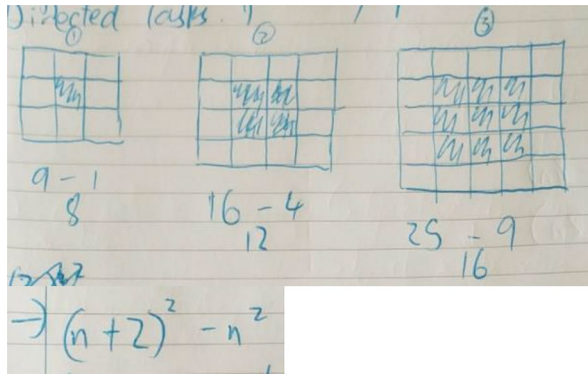 Directed Tasks
① ② ③
9 - 1
8
16 - 4
12
25 - 9
16
→ (n + 2)² - n²